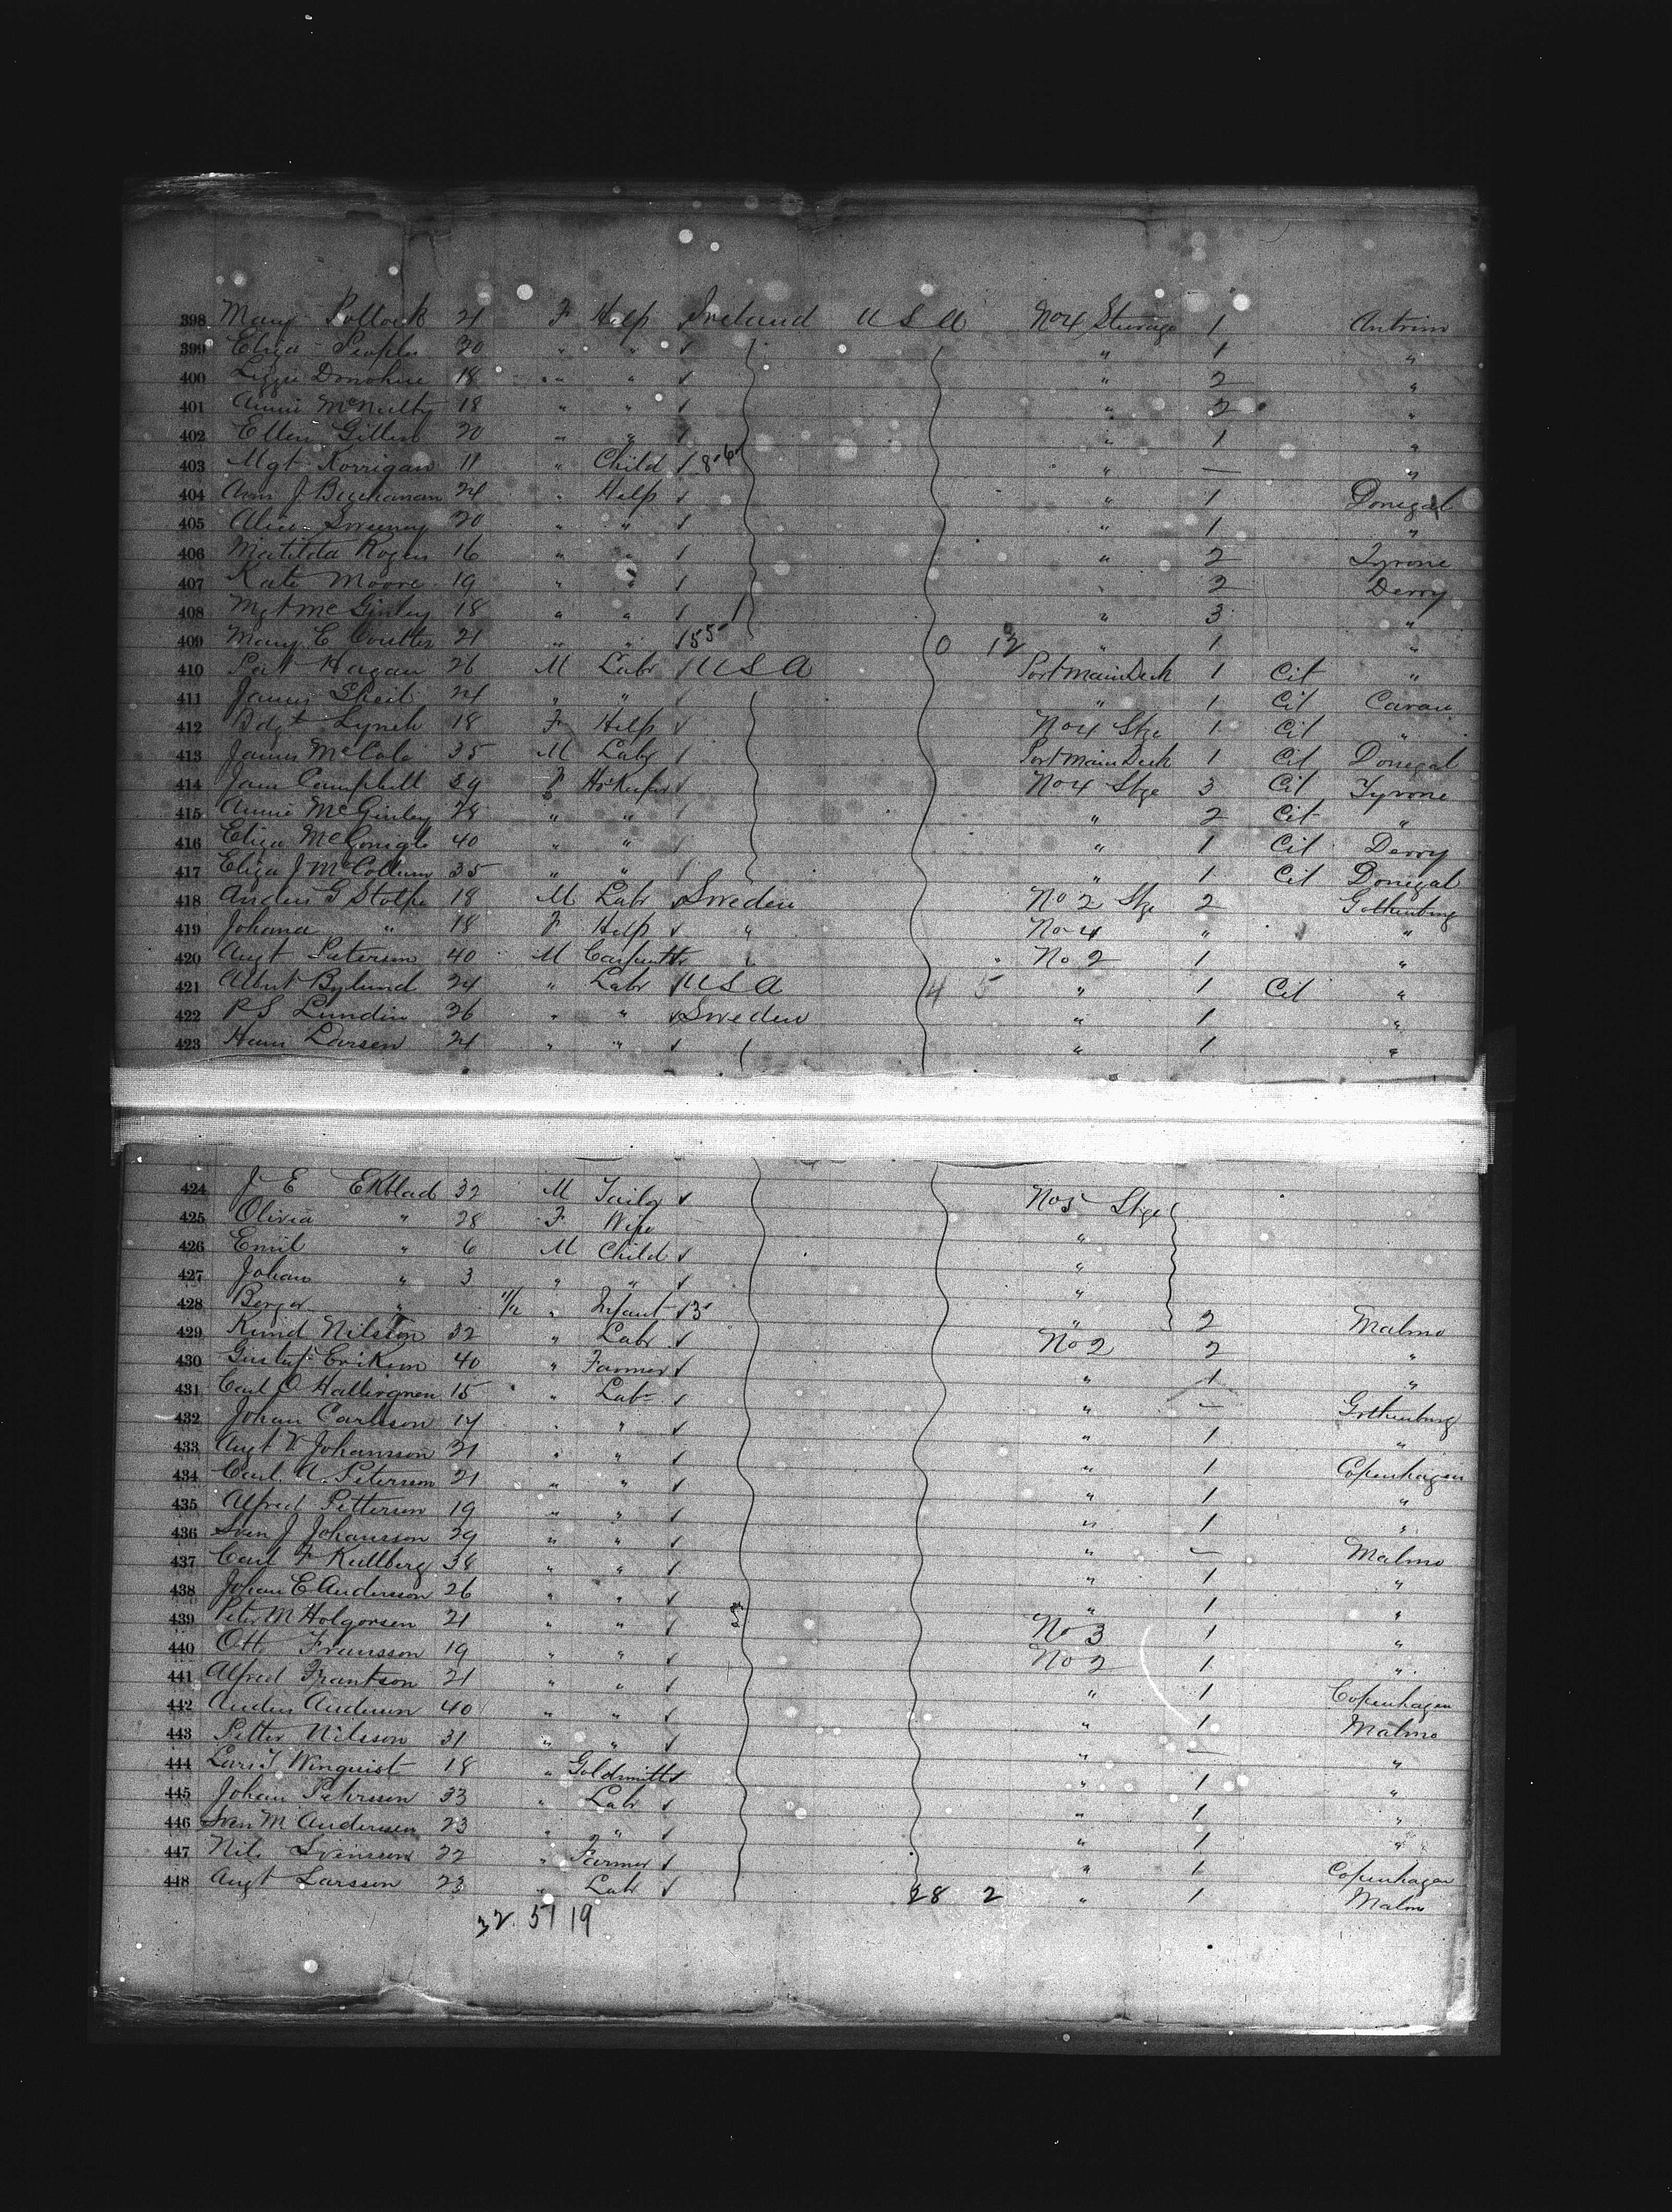 398 Mary Pollock 21 F Help Ireland U S A No 4 Steerage 1 Antrim
399 Eliza Peoples 20 " " " 1 "
400 Lizzie Donohue 18 " " " 2 "
401 Annie McNulty 18 " " " 2 "
402 Ellen Gillen 20 " " " 1 "
403 Mgt Korrigan 11 " Child 8 6 " — "
404 Ann J Buchanan 24 " Help " 1 Donegal
405 Alice Sweeney 20 " " " 1 "
406 Matilda Rogers 16 " " " 2 Tyrone
407 Kate Moore 19 " " " 2 Derry
408 Mgt McGinley 18 " " " 3 "
409 Mary E Coulter 21 " " 55 0 12 " 1 "
410 Pat Hagan 26 M Labr U S A Port Main Deck 1 Cit "
411 James Sheil 24 " " " 1 Cit Cavan
412 Bdgt Lynch 18 F Help No 4 Stge 1 Cit "
413 James McCole 35 M Labr Port Main Deck 1 Cit Donegal
414 Jane Campbell 39 F HsKeeper No 4 Stge 3 Cit Tyrone
415 Annie McGinley 28 " " " 2 Cit "
416 Eliza McGonigle 40 " " " 1 Cit Derry
417 Eliza J McCollum 35 " " " 1 Cit Donegal
418 Anders G Stolpe 18 M Labr Sweden No 2 Stge 2 Gothenburg
419 Johana " 18 F Help " No 4 " "
420 Augt Peterson 40 M Carpenter " No 2 1 "
421 Albert Bylund 24 " Labr U S A 4 5 " 1 Cit "
422 P S Lundin 26 " " Sweden " 1 "
423 Hans Larsen 24 " " " 1 "
424 J E Ekblad 32 M Tailor No 5 Stge
425 Olivia " 28 F Wife "
426 Emil " 6 M Child "
427 Johan " 3 " " "
428 Berger " 11/12 " Infant 13 " 2 Malmo
429 Knud Nilsson 32 " Labr No 2 2 "
430 Gustaf Erikson 40 " Farmer " 1 "
431 Carl O 15 " Labr " — Gothenburg
432 Johan Carlsson 17 " " " 1 "
433 Augt V Johansson 21 " " " 1 Copenhagen
434 Carl A Peterson 21 " " " 1 "
435 Alfred Petterson 19 " " " 1 "
436 Sven J Johansson 29 " " " — Malmo
437 Carl F Kullberg 38 " " " 1 "
438 Johan E Anderson 26 " " " 1 "
439 Peter M Holgersen 21 " " No 3 1 "
440 Otto Fransson 19 " " No 2 1 "
441 Alfred Frantson 21 " " " 1 Copenhagen
442 Anders Anderson 40 " " " 1 Malmo
443 Petter Nilsson 31 " " " — "
444 Lars T Winquist 18 " Goldsmith " 1 "
445 Johan Pehrsson 33 " Labr " 1 "
446 Sven M Andersen 23 " " " 1 "
447 Nils Svensson 22 " Farmer " 1 Copenhagen
448 Augt Larsson 23 " Labr 28 2 " 1 Malmo
32 51 19